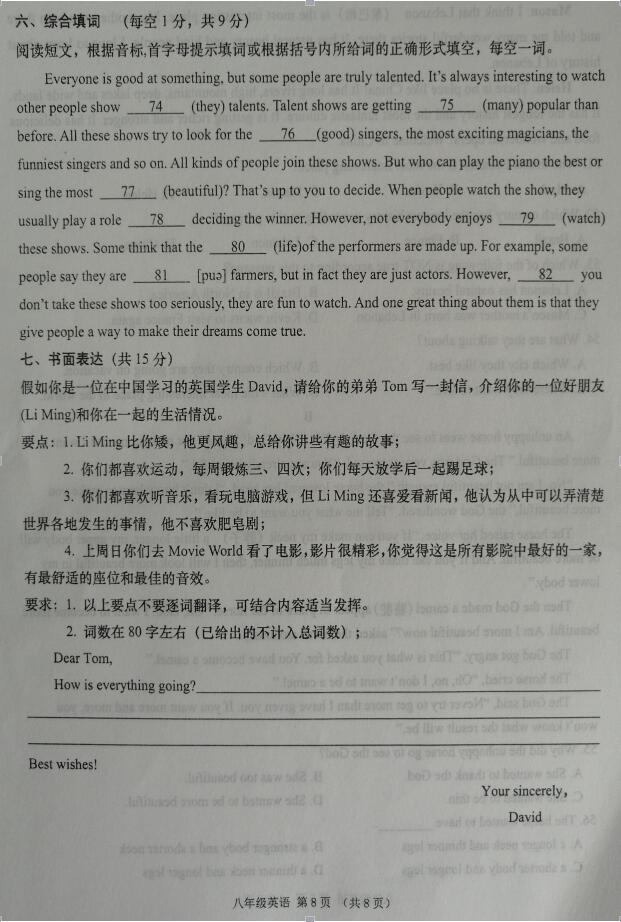 六、综合填词 （每空 1 分，共 9 分）
阅读短文，根据音标,首字母提示填词或根据括号内所给词的正确形式填空，每空一词。
Everyone is good at something, but some people are truly talented. It's always interesting to watch
other people show 74 (they) talents. Talent shows are getting 75 (many) popular than
before. All these shows try to look for the 76 (good) singers, the most exciting magicians, the
funniest singers and so on. All kinds of people join these shows. But who can play the piano the best or
sing the most 77 (beautiful)? That's up to you to decide. When people watch the show, they
usually play a role 78 deciding the winner. However, not everybody enjoys 79 (watch)
these shows. Some think that the 80 (life)of the performers are made up. For example, some
people say they are 81 [puə] farmers, but in fact they are just actors. However, 82 you
don't take these shows too seriously, they are fun to watch. And one great thing about them is that they
give people a way to make their dreams come true.
七、书面表达（共 15 分）
假如你是一位在中国学习的英国学生 David，请给你的弟弟 Tom 写一封信，介绍你的一位好朋友
(Li Ming)和你在一起的生活情况。
要点：1. Li Ming 比你矮，他更风趣，总给你讲些有趣的故事；
2. 你们都喜欢运动，每周锻炼三、四次；你们每天放学后一起踢足球；
3. 你们都喜欢听音乐，看玩电脑游戏，但 Li Ming 还喜爱看新闻，他认为从中可以弄清楚
世界各地发生的事情，他不喜欢肥皂剧；
4. 上周日你们去 Movie World 看了电影,影片很精彩,你觉得这是所有影院中最好的一家，
有最舒适的座位和最佳的音效。
要求：1. 以上要点不要逐词翻译，可结合内容适当发挥。
2. 词数在 80 字左右（已给出的不计入总词数）；
Dear Tom,
How is everything going?
Best wishes!
Your sincerely,
David
八年级英语 第 8 页 （共 8 页）